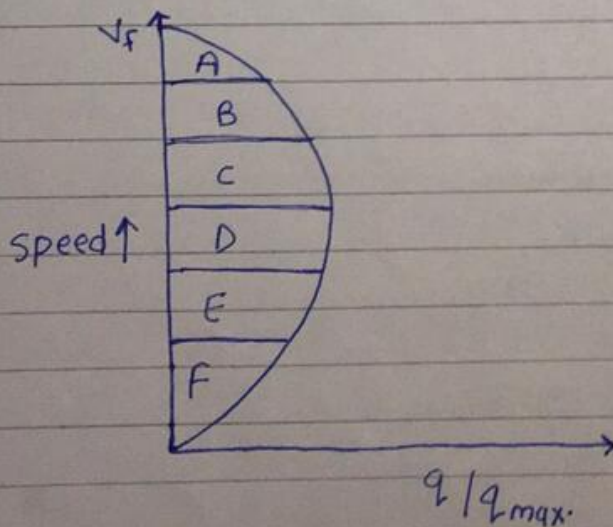 V_f
A
B
C
speed↑
D
E
F
q/q_max.